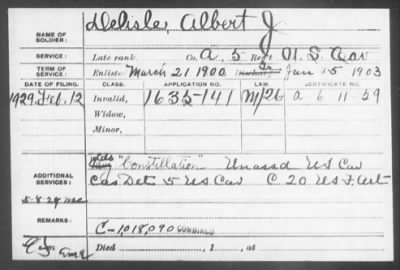 Delisle, Albert J
NAME OF SOLDIER:
SERVICE: Late rank, Co. A, 5 Reg't U.S. Cav
TERM OF SERVICE: Enlisted March 21 1900 Jan 25 1903
DATE OF FILING. CLASS. APPLICATION NO. LAW. CERTIFICATE NO.
1929, Feb. 12 Invalid, 1635-141 A-6-11-59
Widow,
Minor,
"Constellation" Unassd US Cav
ADDITIONAL SERVICES: Cas Det 5 US Cav C 20 US Inf.
5-8-29
REMARKS: C-1,018,090
Died , 1 , at